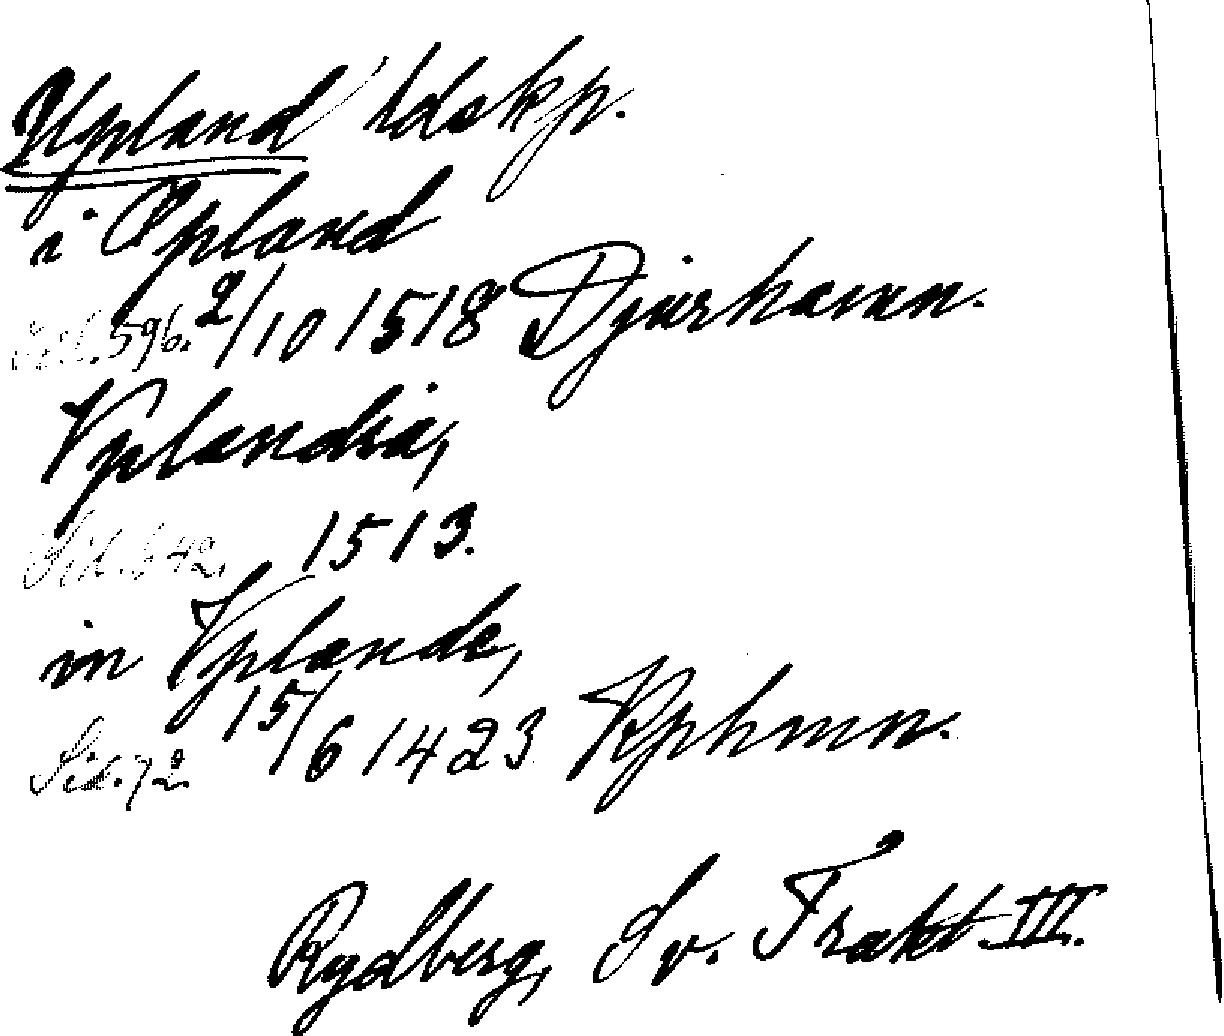 Upland ldskp.
i Opland
Sid. 596. 2/10 1518 Djurhamn.
Vplandia,
Sid. 542. 1513.
in Vplande,
Sid. 72. 15/6 1423 Kphmn.
Rydberg, Sv. Trakt III.